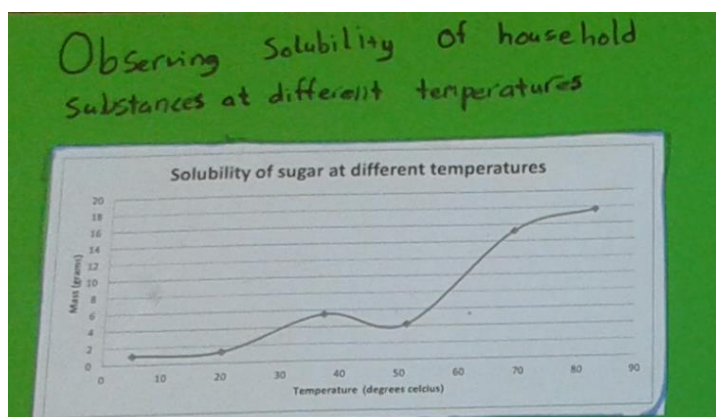 Observing Solubility of household
Substances at different temperatures
Solubility of sugar at different temperatures
20
18
16
14
12
10
8
6
4
2
0
Mass (grams)
0 10 20 30 40 50 60 70 80 90
Temperature (degrees celcius)